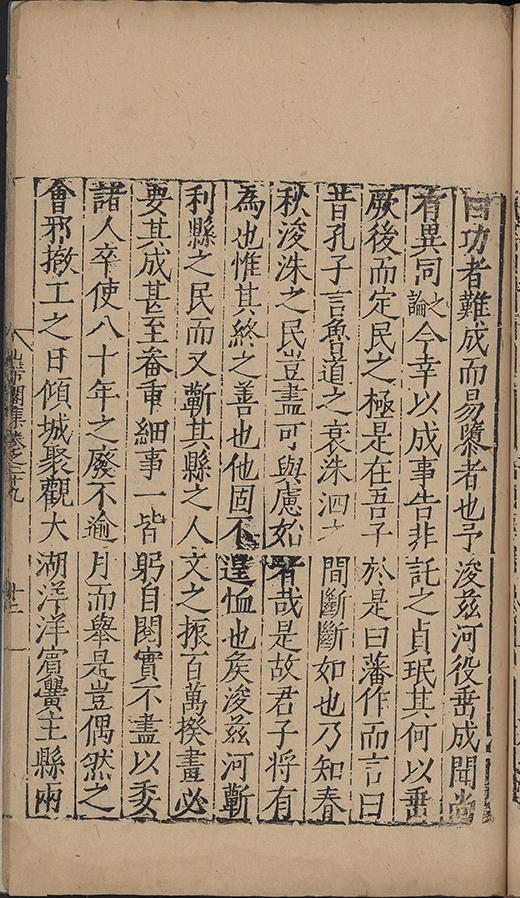 曰功者難成而易隳者也予浚兹河役垂成聞尚
有異同之論今幸以成事告非託之貞珉其何以垂
厥後而定民之極是在吾子於是曰藩作而言曰
昔孔子言魯道之衰洙泗之間斷斷如也乃知春
秋浚洙之民豈盡可與慮始者哉是故君子將有
為也惟其終之善也他固不遑恤也矦浚兹河蘄
利縣之民而又蘄其縣之人文之振百萬揆畫必
要其成甚至畚重細事一皆躬自閱實不盡以委
諸人卒使八十年之廢不逾月而舉是豈偶然之
會邪撤工之日傾城聚觀大湖洋洋賓黌主縣兩